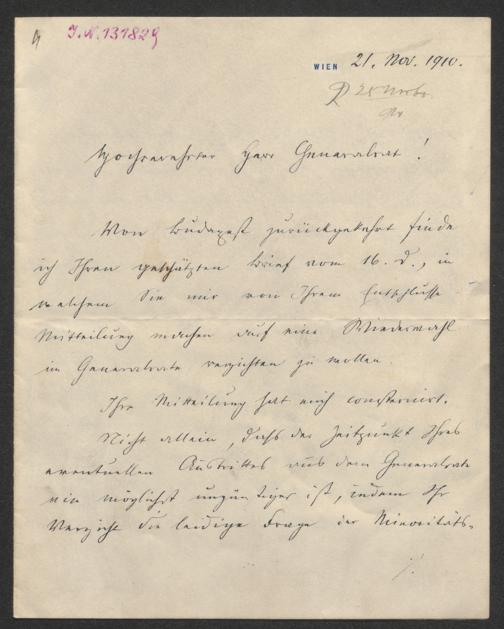 J.N. 131829
WIEN 21. Nov. 1910.
Hochverehrter Herr Generalrat!
Von Budapest zurückgekehrt finde
ich Ihren geschätzten Brief vom 16. d., in
welchem Sie mir von Ihrem Entschlusse
Mitteilung machen auf eine Wiederwahl
im Generalrate verzichten zu wollen.
Ihre Mitteilung hat mich consterniert.
Nicht allein, daß der Zeitpunkt Ihres
eventuellen Austrittes aus dem Generalrate
ein möglichst ungünstiger ist, indem Ihr
Verzicht die leidige Frage der Minoritäts-